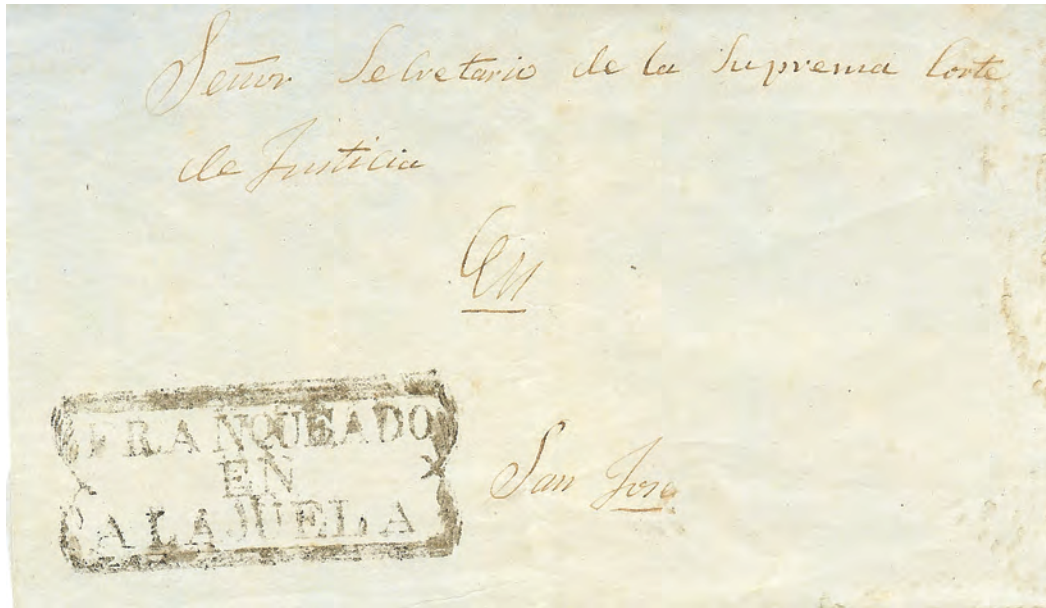 Señor Secretario de la Suprema Corte
de Justicia
En
San José
FRANQUEADO
EN
ALAJUELA